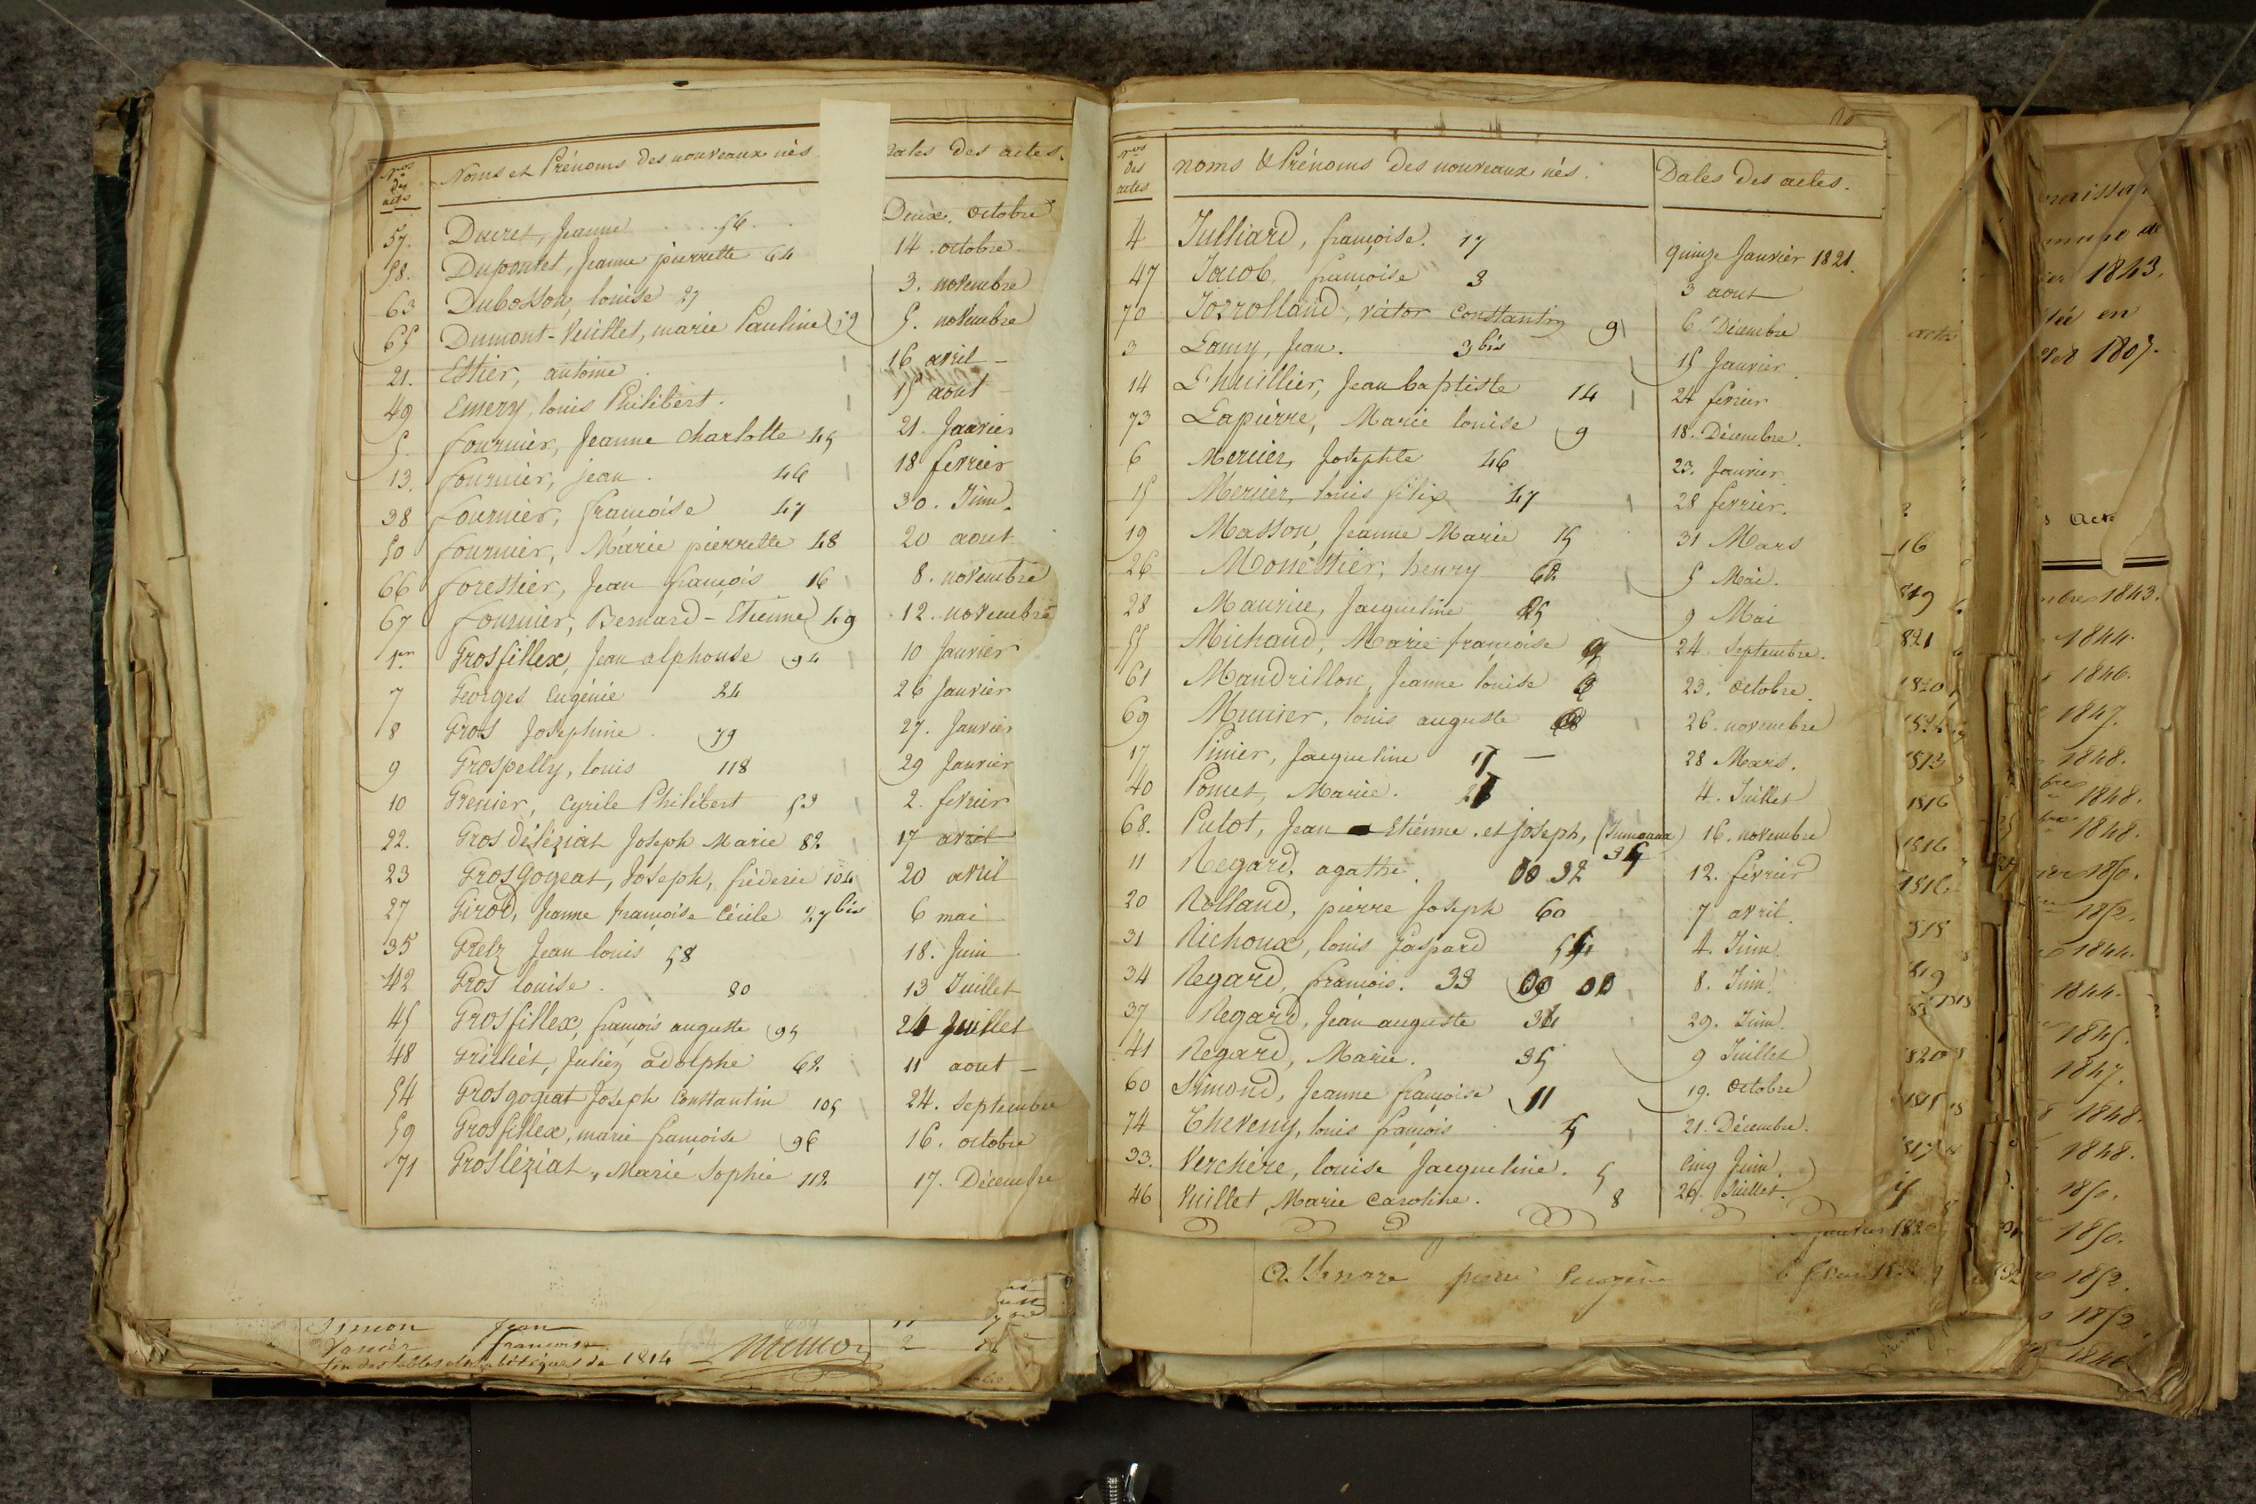 Nos des actes Noms et Prénoms des nouveaux nés. Dates des actes.
57. Ducret, Jeanne 56 Deux. octobre
58. Dupontet, Jeanne pierrette 64 14. octobre
63 Dubosson, louise 27 3. novembre
65 Dumont-Vuillet, marie Pauline 19 5. novembre
21. Estier, antoine. 16 avril
49 Emery, louis Philibert. 15 aout
5. fournier, Jeanne charlotte 45 21. Janvier
13. fournier, jean. 46 18 fevrier
38 fournier, françoise 47 30. Juin.
50 fournier, Marie pierrette 48 20 aout
66 forestier, Jean françois 16 8. novembre
67 fournier, Bernard-Etienne 49 12. novembre
1er Grosfillex, Jean alphonse 94 10 Janvier
7 Georges Eugénie 24 26 Janvier
8 Gros Josephine. 79 27. Janvier
9 Grospelly, louis 118 29 Janvier
10 Grenier, Cyrile Philibert 53 2. fevrier
22. Gros déléziat Joseph Marie 82 17 avril
23 Grosgogeat, Joseph, fréderic 104 20 avril
27 Girod, Jeanne françoise Cécile 27 bis 6 mai
35 Grelz Jean louis 58 18. Juin
42 Gros louise. 80 13 Juillet
45 Grosfillex, françois auguste 95 24 Juillet
48 Grichet, Julien adolphe 62 11 aout
54 Grosgogeat Joseph Constantin 105 24. septembre
59 Grosfillex, marie françoise 96 16. octobre
71 Grosléziat, Marie Sophie 112 17. Décembre
Simon Jean
françoise 2
fin des tables alphabétiques de 1814
Nos des actes noms & Prénoms des nouveaux nés. Dates des actes.
4 Julliard, françoise. 17 quinze Janvier 1821.
47 Jacob, françoise 3 3 aout
70 Jozrolland, victor constantin 9 6 Décembre
3 Lamy, Jean. 3 bis 15 Janvier.
14 L'huillier, Jean baptiste 14 24 fevrier
73 Lapierre, Marie louise 9 18. Décembre.
6 Mercier, Josephte 46 23. Janvier.
15 Mercier, louis félix 47 28 fevrier.
19 Masson, Jeanne Marie 15 31 Mars
26 Monestier, henry 62 5 Mai.
28 Maurice, Jacqueline 25 9 Mai
55 Michaud, Marie françoise 9 24. septembre.
61 Mandrillon, Jeanne louise 23. octobre.
69 Munier, louis auguste 26. novembre
17 Pinier, Jacqueline 28 Mars.
40 Pomet, Marie. 4. Juillet
68. Putot, Jean Etienne. et joseph, (Jumeaux) 16. novembre
11 Regard, agathe. 32 12. février
20 Rolland, pierre Joseph 60 7 avril.
31 Richoux, louis Gaspard 4. Juin.
34 Regard, françois. 33 8. Juin.
37 Regard, Jean auguste 34 29. Juin.
41 Regard, Marie. 35 9 Juillet
60 Simond, Jeanne françoise 11 19. octobre
74 Theveny, louis françois 5 21. Décembre.
33. Verchère, louise Jacqueline. 5 Cinq Juin.
46 Vuillet, Marie Caroline. 8 26. Juillet.
janvier 1820
16
819
821
1820
1813
1816
1816
1816
820
1843.
en
1807.
1843.
1844.
1846.
1847.
1848.
1848.
1848.
1850.
1852.
1844.
1844.
1845.
1847.
1848.
1848.
1850.
1850.
1852.
1852.